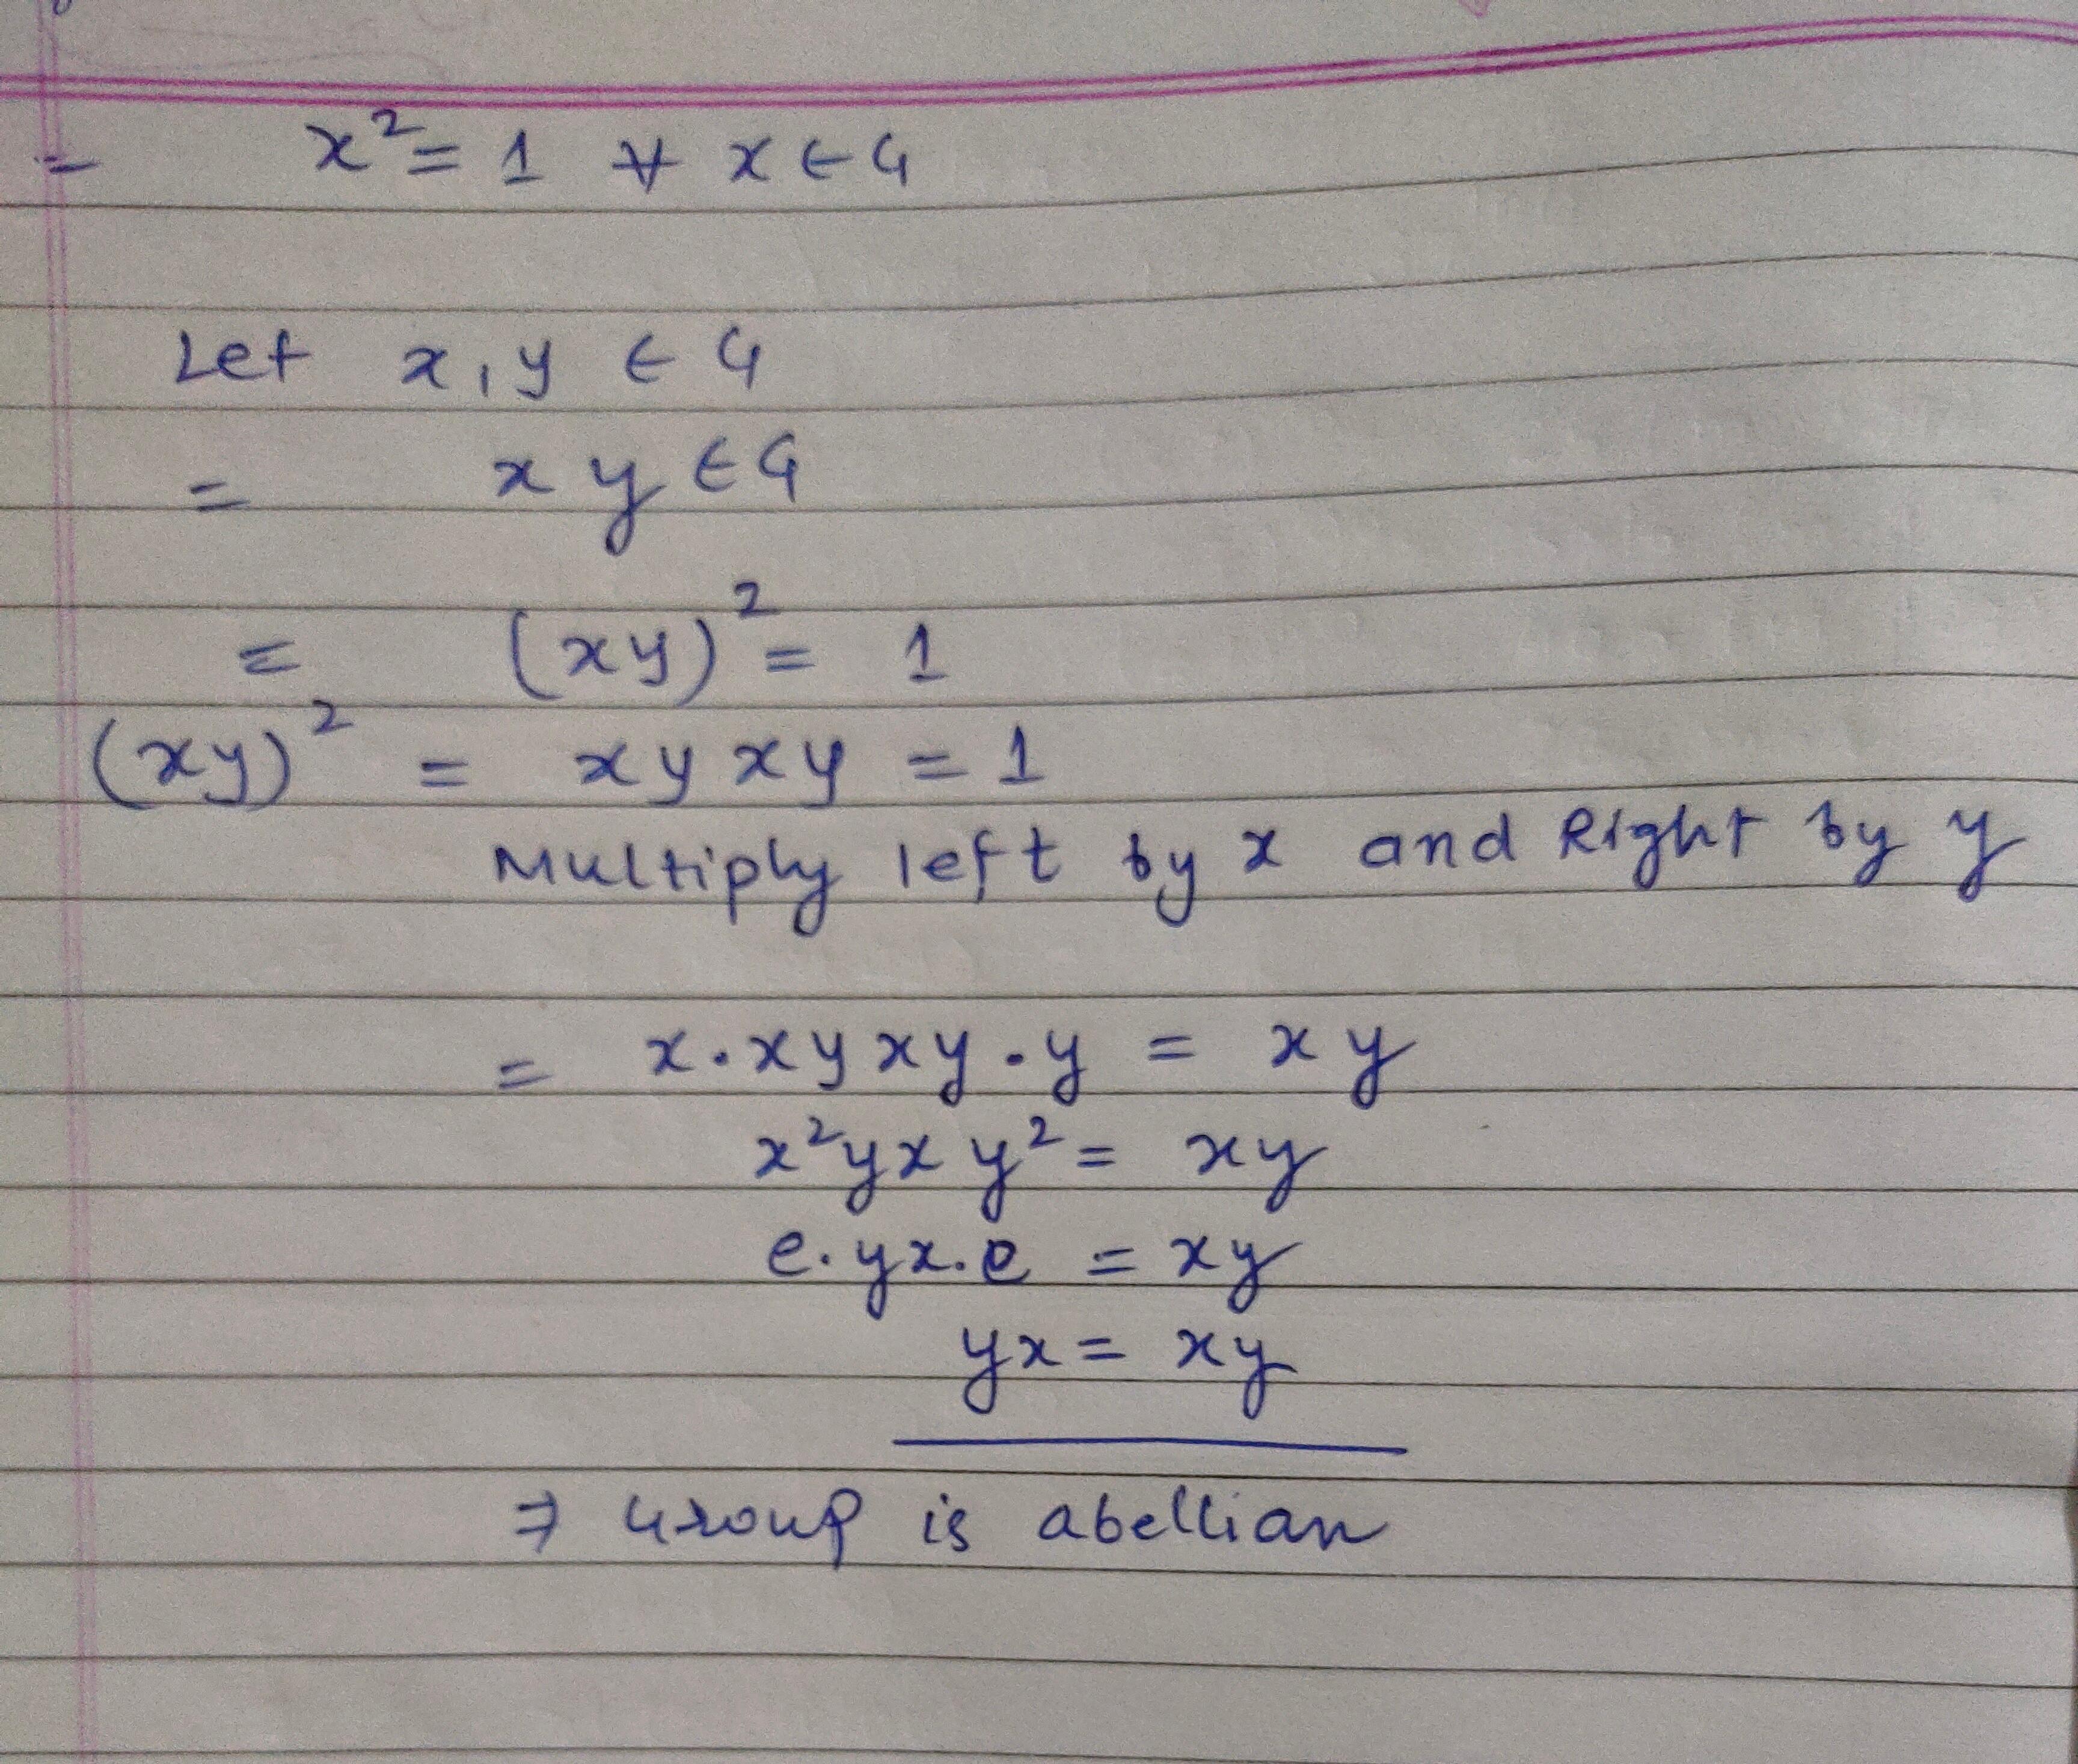 = x² = 1 ∀ x ∈ G
Let x, y ∈ G
= x y ∈ G
= (xy)² = 1
(xy)² = x y x y = 1
Multiply left by x and Right by y
= x · x y x y · y = x y
x² y x y² = x y
e · y x · e = x y
y x = x y
⇒ Group is abellian